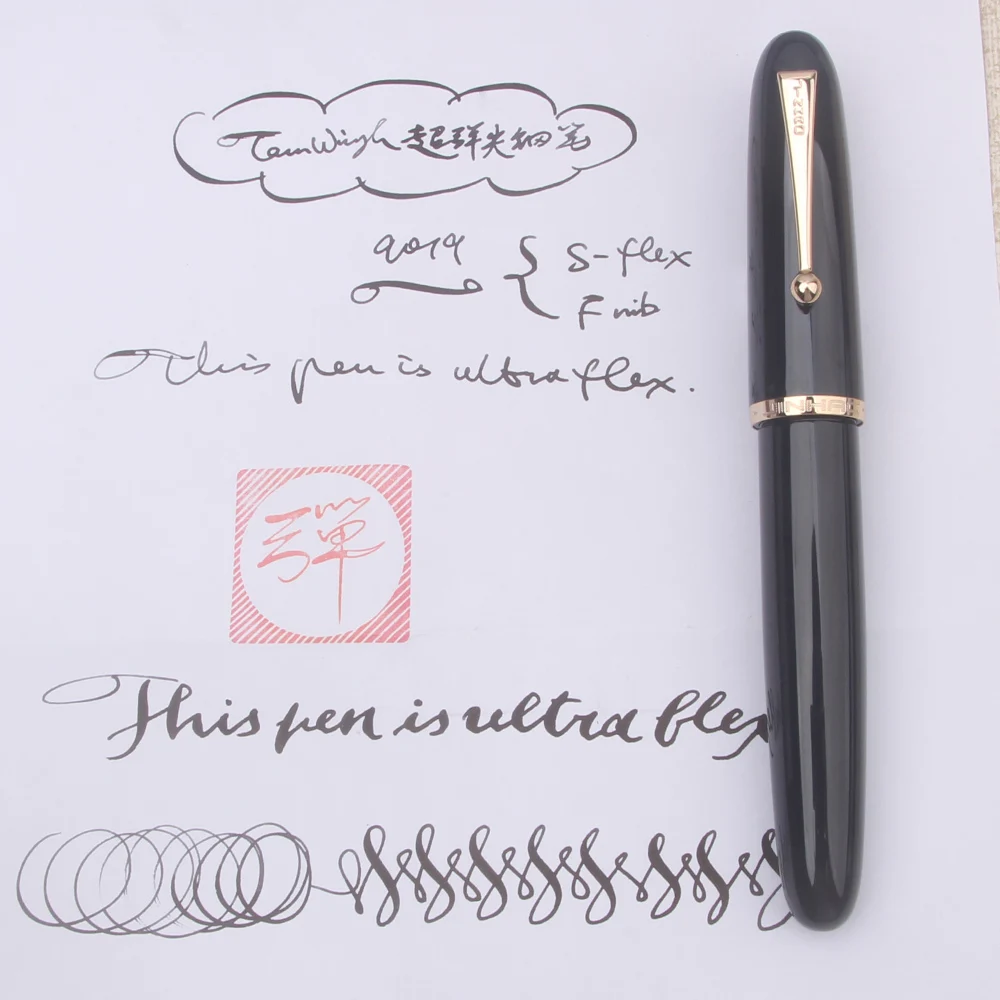 TamWingh 超弹尖钢笔
9019
S-flex
F nib
This pen is ultra flex.
彈
This pen is ultra flex
JINHAO
JINHAO